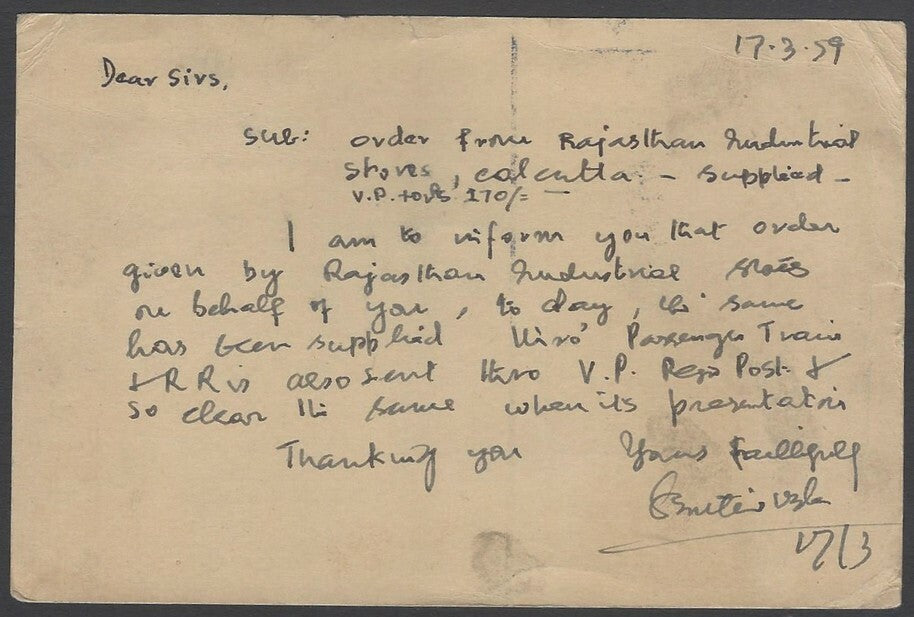 17.3.59
Dear Sirs,
Sub: order from Rajasthan Industrial
Stores, Calcutta - supplied -
V.P. 170/=
I am to inform you that order
given by Rajasthan Industrial Stores
on behalf of you, to day, the same
has been supplied thro' Passenger Train
& RR is also sent thro V.P. Reg. Post &
so clear the same when its presentation
Thanking you Yours faithfully
17/3